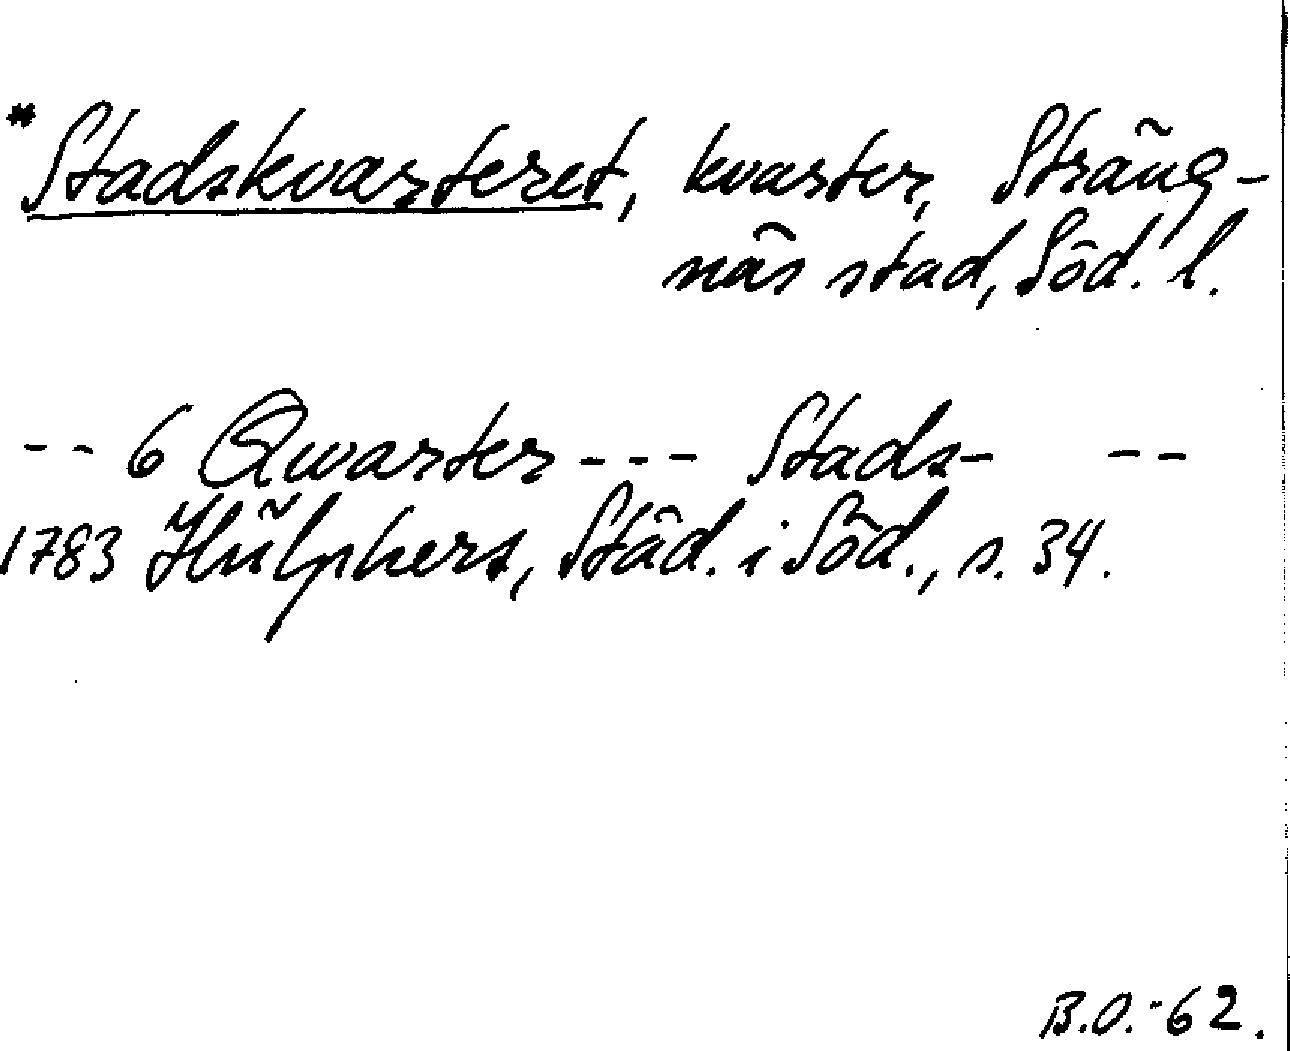 *Stadskvarteret, kvarter, Sträng-
näs stad, Söd. l.
-- 6 Qwarter --- Stads- --
1783 Hülphers, Städ. i Söd., s. 34.
B.O.-62.